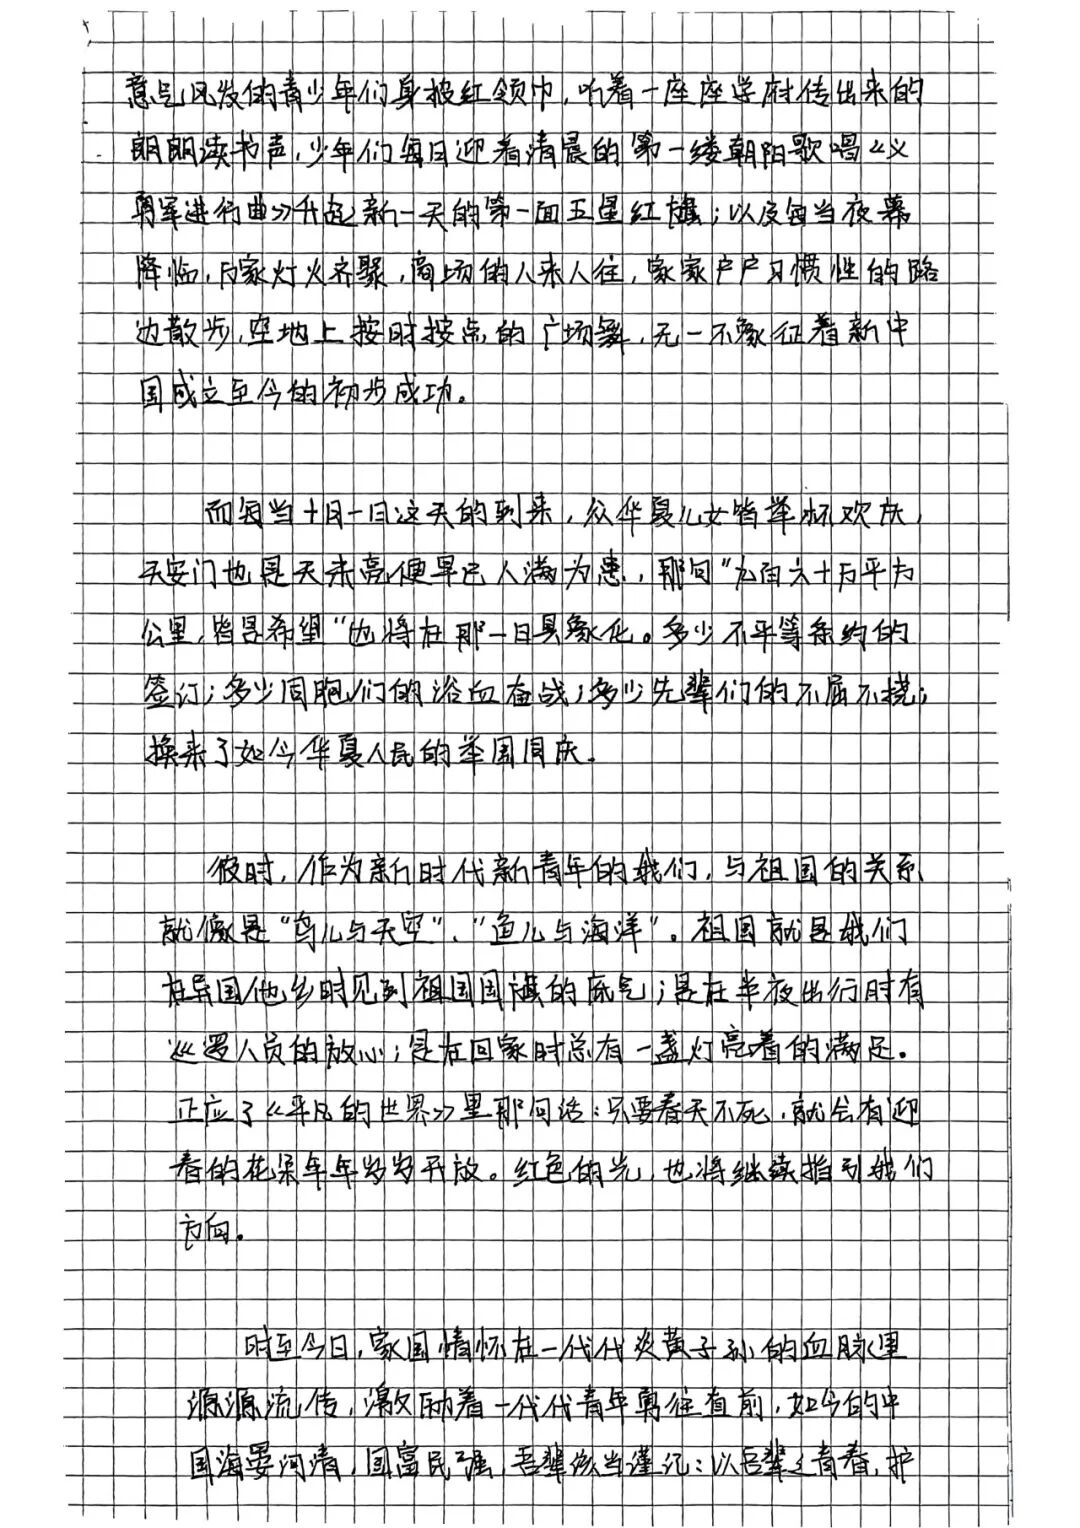 意气风发的青少年们身披红领巾,听着一座座学府传出来的
朗朗读书声,少年们每日迎着清晨的第一缕朝阳歌唱《义
勇军进行曲》升起新一天的第一面五星红旗;以及每当夜幕
降临,万家灯火齐聚,商场的人来人往,家家户户习惯性的路
边散步,空地上按时按点的广场舞,无一不象征着新中
国成立至今的初步成功。
而每当十月一日这天的到来,众华夏儿女皆举怀欢庆,
天安门也是天未亮便早已人满为患,那句“九百六十万平方
公里,皆是希望”也将在那一日具象化。多少不平等条约的
签订;多少同胞们的浴血奋战;多少先辈们的不屈不挠;
换来了如今华夏人民的举国同庆。
彼时,作为新时代新青年的我们,与祖国的关系
就像是“鸟儿与天空”、“鱼儿与海洋”。祖国就是我们
在异国他乡时见到祖国国旗的底气;是在半夜出行时有
巡逻人员的放心;是在回家时总有一盏灯亮着的满足。
正应了《平凡的世界》里那句话:只要春天不死,就会有迎
春的花朵年年岁岁开放。红色的光,也将继续指引我们
方向。
时至今日,家国情怀在一代代炎黄子孙的血脉里
源源流传,激励着一代代青年勇往直前,如今的中
国海晏河清,国富民强,吾辈该当谨记:以吾辈之青春,护